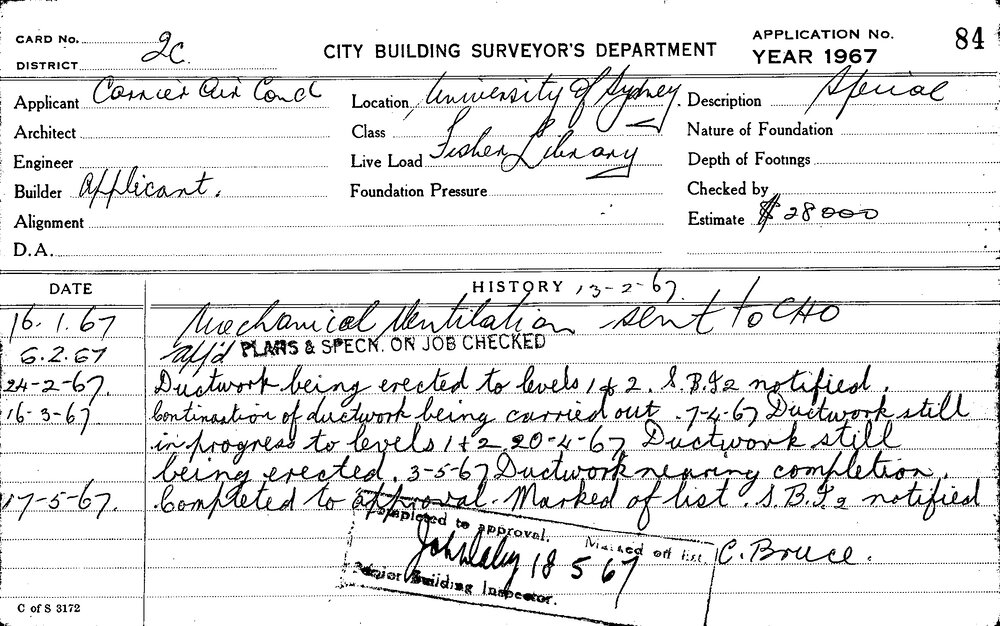 CARD No.
DISTRICT 2C.
CITY BUILDING SURVEYOR'S DEPARTMENT
APPLICATION No. 84
YEAR 1967
Applicant Carrier Air Cond
Location University of Sydney.
Description Special
Architect
Class Fisher Library
Nature of Foundation
Engineer
Live Load
Depth of Footings
Builder Applicant.
Foundation Pressure
Checked by
Alignment
Estimate $28000
D.A.
DATE
HISTORY 13-2-67.
16.1.67 Mechanical Ventilation sent to CHO
6.2.67 app'd PLANS & SPECN. ON JOB CHECKED
24-2-67. Ductwork being erected to levels 1 & 2. S.B.I2 notified.
16-3-67. Continuation of ductwork being carried out. 7-4-67 Ductwork still
in progress to levels 1 & 2 20-4-67 Ductwork still
being erected. 3-5-67 Ductwork nearing completion.
17-5-67. Completed to approval. Marked of list. S.B.I2 notified
Completed to approval. Marked off list. C. Bruce.
18 5 67
Senior Building Inspector.
C of S 3172